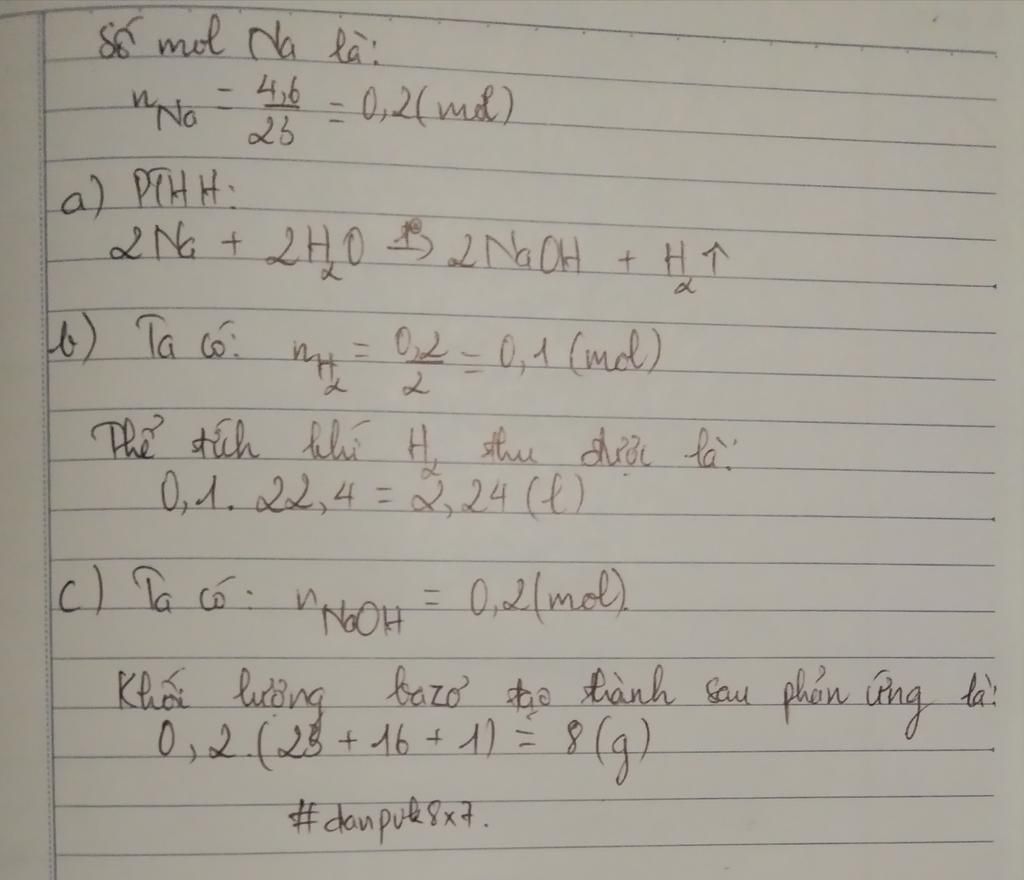 Số mol Na là:
n_Na = 4,6/23 = 0,2(mol)
a) PTHH:
2Na + 2H₂O → 2NaOH + H₂↑
b) Ta có: n_H₂ = 0,2/2 = 0,1(mol)
Thể tích khí H₂ thu được là:
0,1. 22,4 = 2,24(l)
c) Ta có: n_NaOH = 0,2(mol).
Khối lượng bazơ tạo thành sau phản ứng là:
0,2.(23 + 16 + 1) = 8(g)